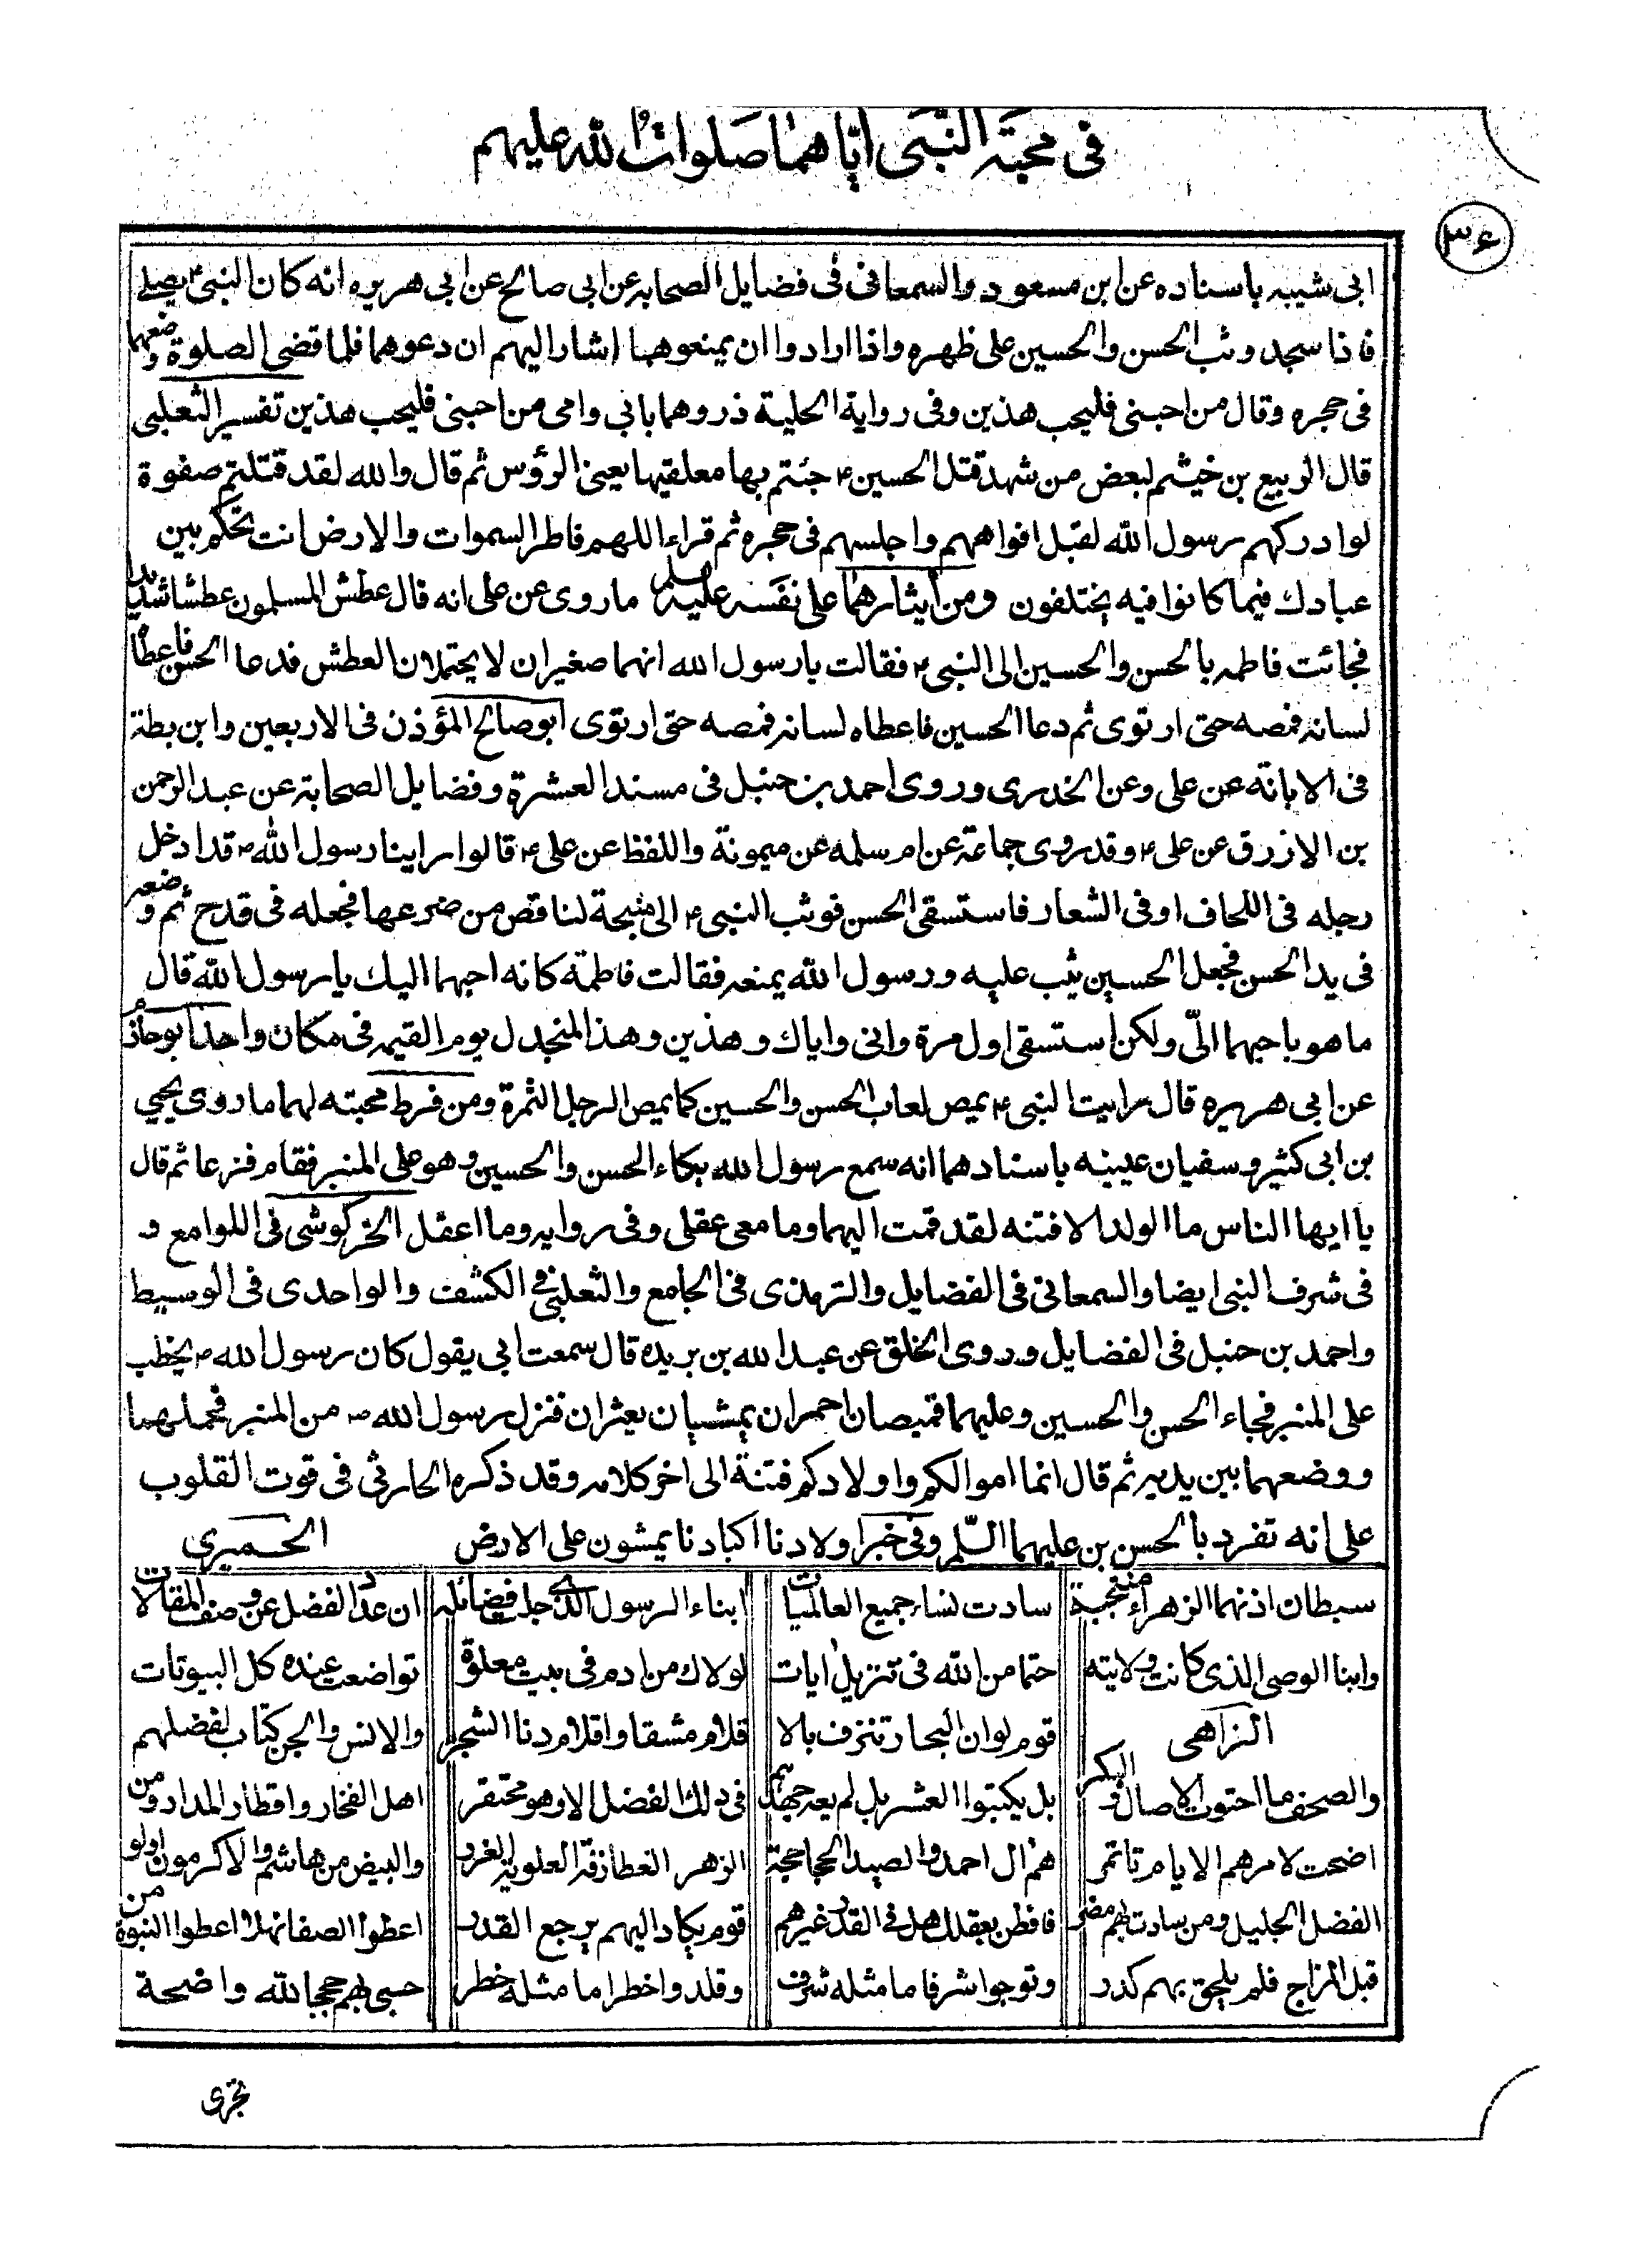 فى محبة النبى اياهما صلوات الله عليهم
٣٦
ابى شيبه باسناده عن ابن مسعود والسمعانى فى فضايل الصحابه عن ابى صالح عن ابى هريره انه كان النبى ص يصلى
فاذا سجد وثب الحسن والحسين على ظهره واذا ارادوا ان يمنعوهما اشار اليهم ان دعوهما فلما قضى الصلوة وضعهما
فى حجره وقال من احبنى فليحب هذين وفى رواية الحلية ذروهما بابى وامى من احبنى فليحب هذين تفسير الثعلبى
قال الربيع بن خيثم لبعض من شهد قتل الحسين ع جئتم بها معلقيها يعنى الرؤس ثم قال والله لقد قتلتم صفوة
لو ادركهم رسول الله لقبل افواههم واجلسهم فى حجره ثم قراء اللهم فاطر السموات والارض انت تحكم بين
عبادك فيما كانوا فيه يختلفون ومن ايثارهما على نفسه عليه السلم ما روى عن على انه قال عطش المسلمون عطشا شديدا
فجائت فاطمه بالحسن والحسين الى النبى ص فقالت يا رسول الله انهما صغيران لا يحتملان العطش فدعا الحسن فاعطاه
لسانه فمصه حتى ارتوى ثم دعا الحسين فاعطاه لسانه فمصه حتى ارتوى ابو صالح المؤذن فى الاربعين وابن بطة
فى الابانة عن على وعن الخدرى وروى احمد بن حنبل فى مسند العشرة وفضايل الصحابة عن عبد الرحمن
بن الازرق عن على ع وقد روى جماعة عن ام سلمه عن ميمونة واللفظ عن على ع قالوا راينا رسول الله ص قد ادخل
رجله فى اللحاف او فى الشعار فاستسقى الحسن فوثب النبى ص الى منيحة لنا فمص من ضرعها فجعله فى قدح ثم وضعه
فى يد الحسن فجعل الحسين يثب عليه ورسول الله يمنعه فقالت فاطمة كانه احبهما اليك يا رسول الله قال
ما هو باحبهما الىّ ولكن استسقى اول مرة وانى واياك وهذين وهذا المنجدل يوم القيمه فى مكان واحد ابو حازم
عن ابى هريره قال رايت النبى ص يمص لعاب الحسن والحسين كما يمص الرجل الثمرة ومن فرط محبته لهما ما روى يحيى
بن ابى كثير وسفيان عيينه باسنادهما انه سمع رسول الله بكاء الحسن والحسين وهو على المنبر فقام فزعا ثم قال
يا ايها الناس ما الولد الا فتنه لقد قمت اليهما وما معى عقلى وفى روايه وما اعقل الخركوشى فى اللوامع و
فى شرف النبى ايضا والسمعانى فى الفضايل والترمذى فى الجامع والثعلبى فى الكشف والواحدى فى الوسيط
واحمد بن حنبل فى الفضايل وروى الخلق عن عبد الله بن بريده قال سمعت ابى يقول كان رسول الله ص يخطب
على المنبر فجاء الحسن والحسين وعليهما قميصان احمران يمشيان يعثران فنزل رسول الله ص من المنبر فحملهما
ووضعهما بين يديه ثم قال انما اموالكم واولادكم فتنة الى اخر كلامه وقد ذكره الحارثى فى قوت القلوب
على انه تفرد بالحسن بن عليهما السّلم وفى خبر اولادنا اكبادنا يمشون على الارض الحميرى
سبطان اذنهما الزهراء منتجبة سادت نساء جميع العالميات ابناء الرسول الذى جلت فضائله ان عدّ الفضل عن وصف المقالات
وابنا الوصى الذى كانت ولايته حتما من الله فى تنزيل ايات لولاك من ادم فى بيت معلوة تواضعت عنده كل البيوتات
الزاهى قوم لو ان البحار تنزف بالا قلام مشقا واقلام دنا الشجر والانس والجن كتاب لفضلهم
والصحف ما احتوت الاصال والبكر بل يكتبوا العشر بل لم يعد جهدهم فى ذلك الفضل الا وهو محتقر اهل الفخار واقطار المدار ومن
اضحت لامرهم الايام تاتمر هم ال احمد والصيد الجحاجحة الزهر الغطارفة العلوية الغرر والبيض من هاشم والاكرمون اولو
الفضل الجليل ومن سادت بهم مضر فافطن بعقلك هل فى القدر غيرهم قوم يكاد اليهم يرجع القدر اعطوا الصفا نهلا اعطوا النبوة من
قبل المزاج فلم يلحق بهم كدر وتوجوا شرفا ما مثله شرف وقلدوا خطرا ما مثله خطر حسبى بهم حججا لله واضحة
تجرى